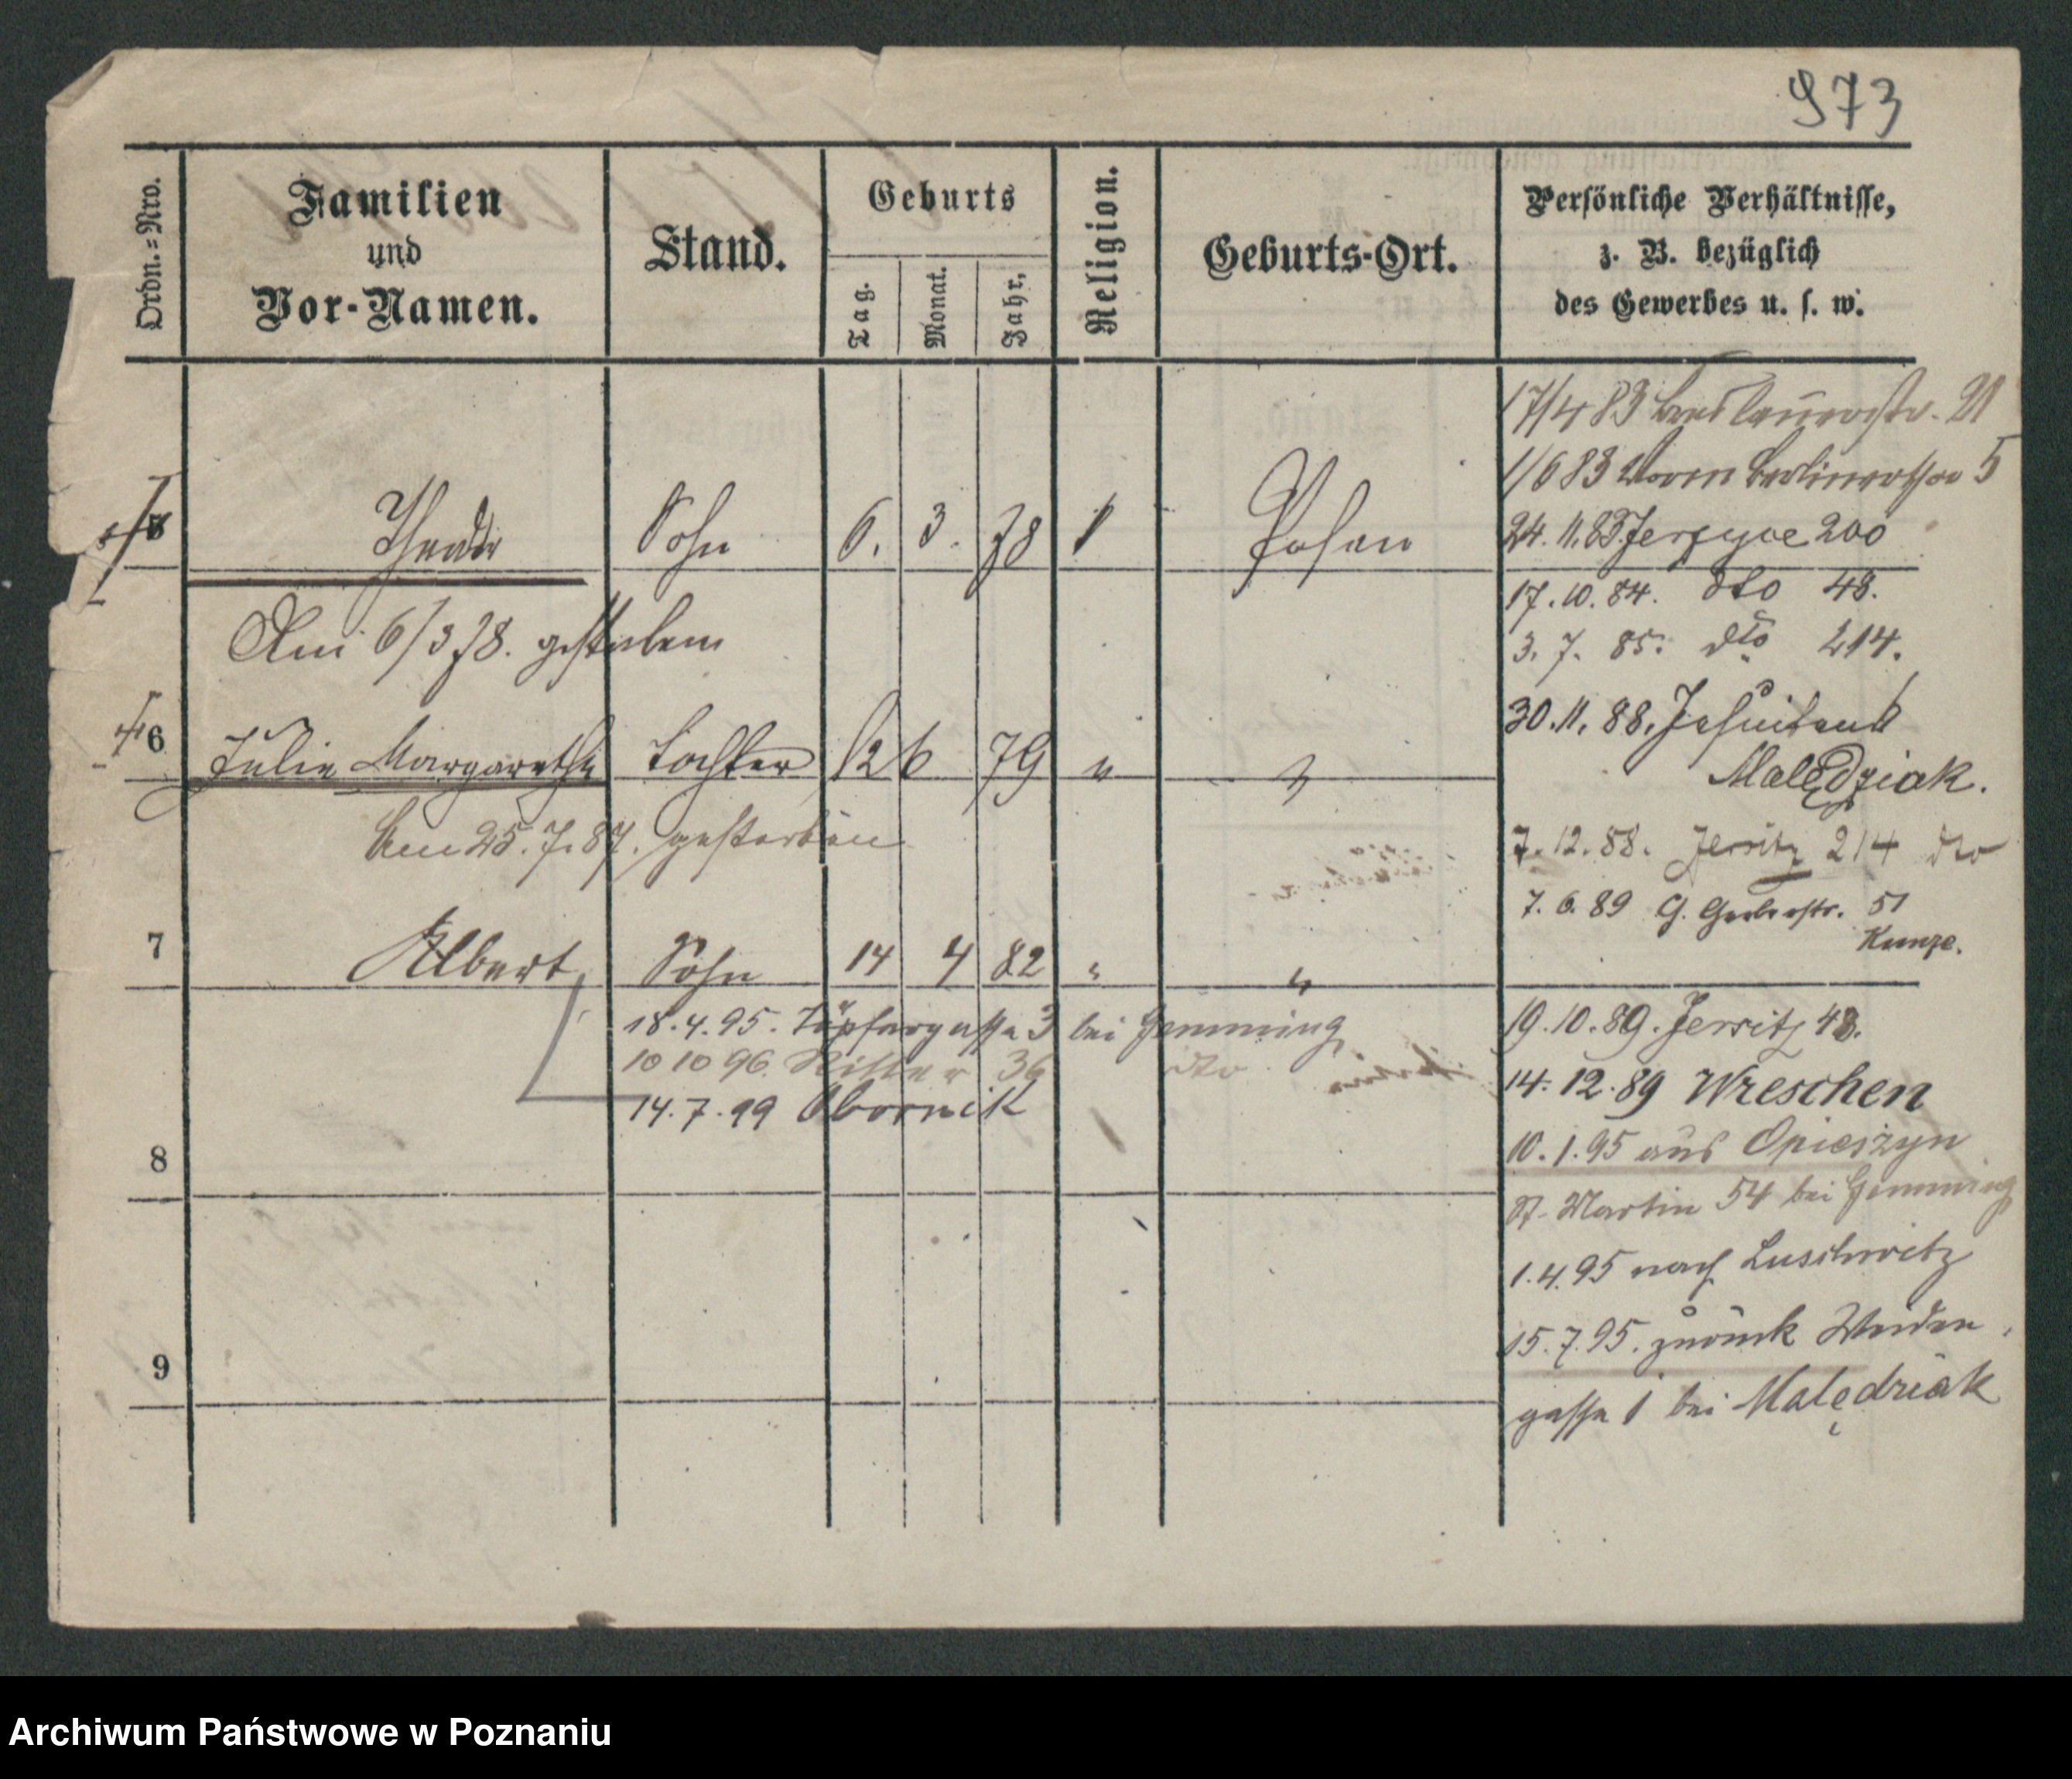 973
Ordn.=Nro.
Familien
und
Vor-Namen.
Stand.
Geburts
Tag.
Monat.
Jahr.
Religion.
Geburts-Ort.
Persönliche Verhältnisse,
z. B. bezüglich
des Gewerbes u. s. w.
17/4 83 Breslauerstr. 21
1/6 83 Berlinerstr 5
5 Sohn 6. 3. 78 Posen
24. 11. 83 Jerzyce 200
17. 10. 84. dto 48.
Am 6/3 78. gestorben
3. 7. 85. dto 214.
30. 11. 88. Jesuitenstr
6 Julie Margarethe Tochter 12 6 79 "
Malędziak.
Am 25. 7. 87. gestorben
7. 12. 88. Jersitz 214 dto
7. 6. 89 G. Gerberstr. 51
Kunze.
7 Albert, Sohn 14 4 82 " "
18. 4. 95. Töpfergasse 3 bei Gemming
19. 10. 89. Jersitz 48.
10 10 96. Ritter 36 dto
14. 12. 89 Wreschen
14. 7. 99 Obornik
8
10. 1. 95 aus Opieszyn
St. Martin 54 bei Gemming
1. 4. 95 nach Luschwitz
15. 7. 95. zurück Weiden
9
gasse 1 bei Malędziak
Archiwum Państwowe w Poznaniu